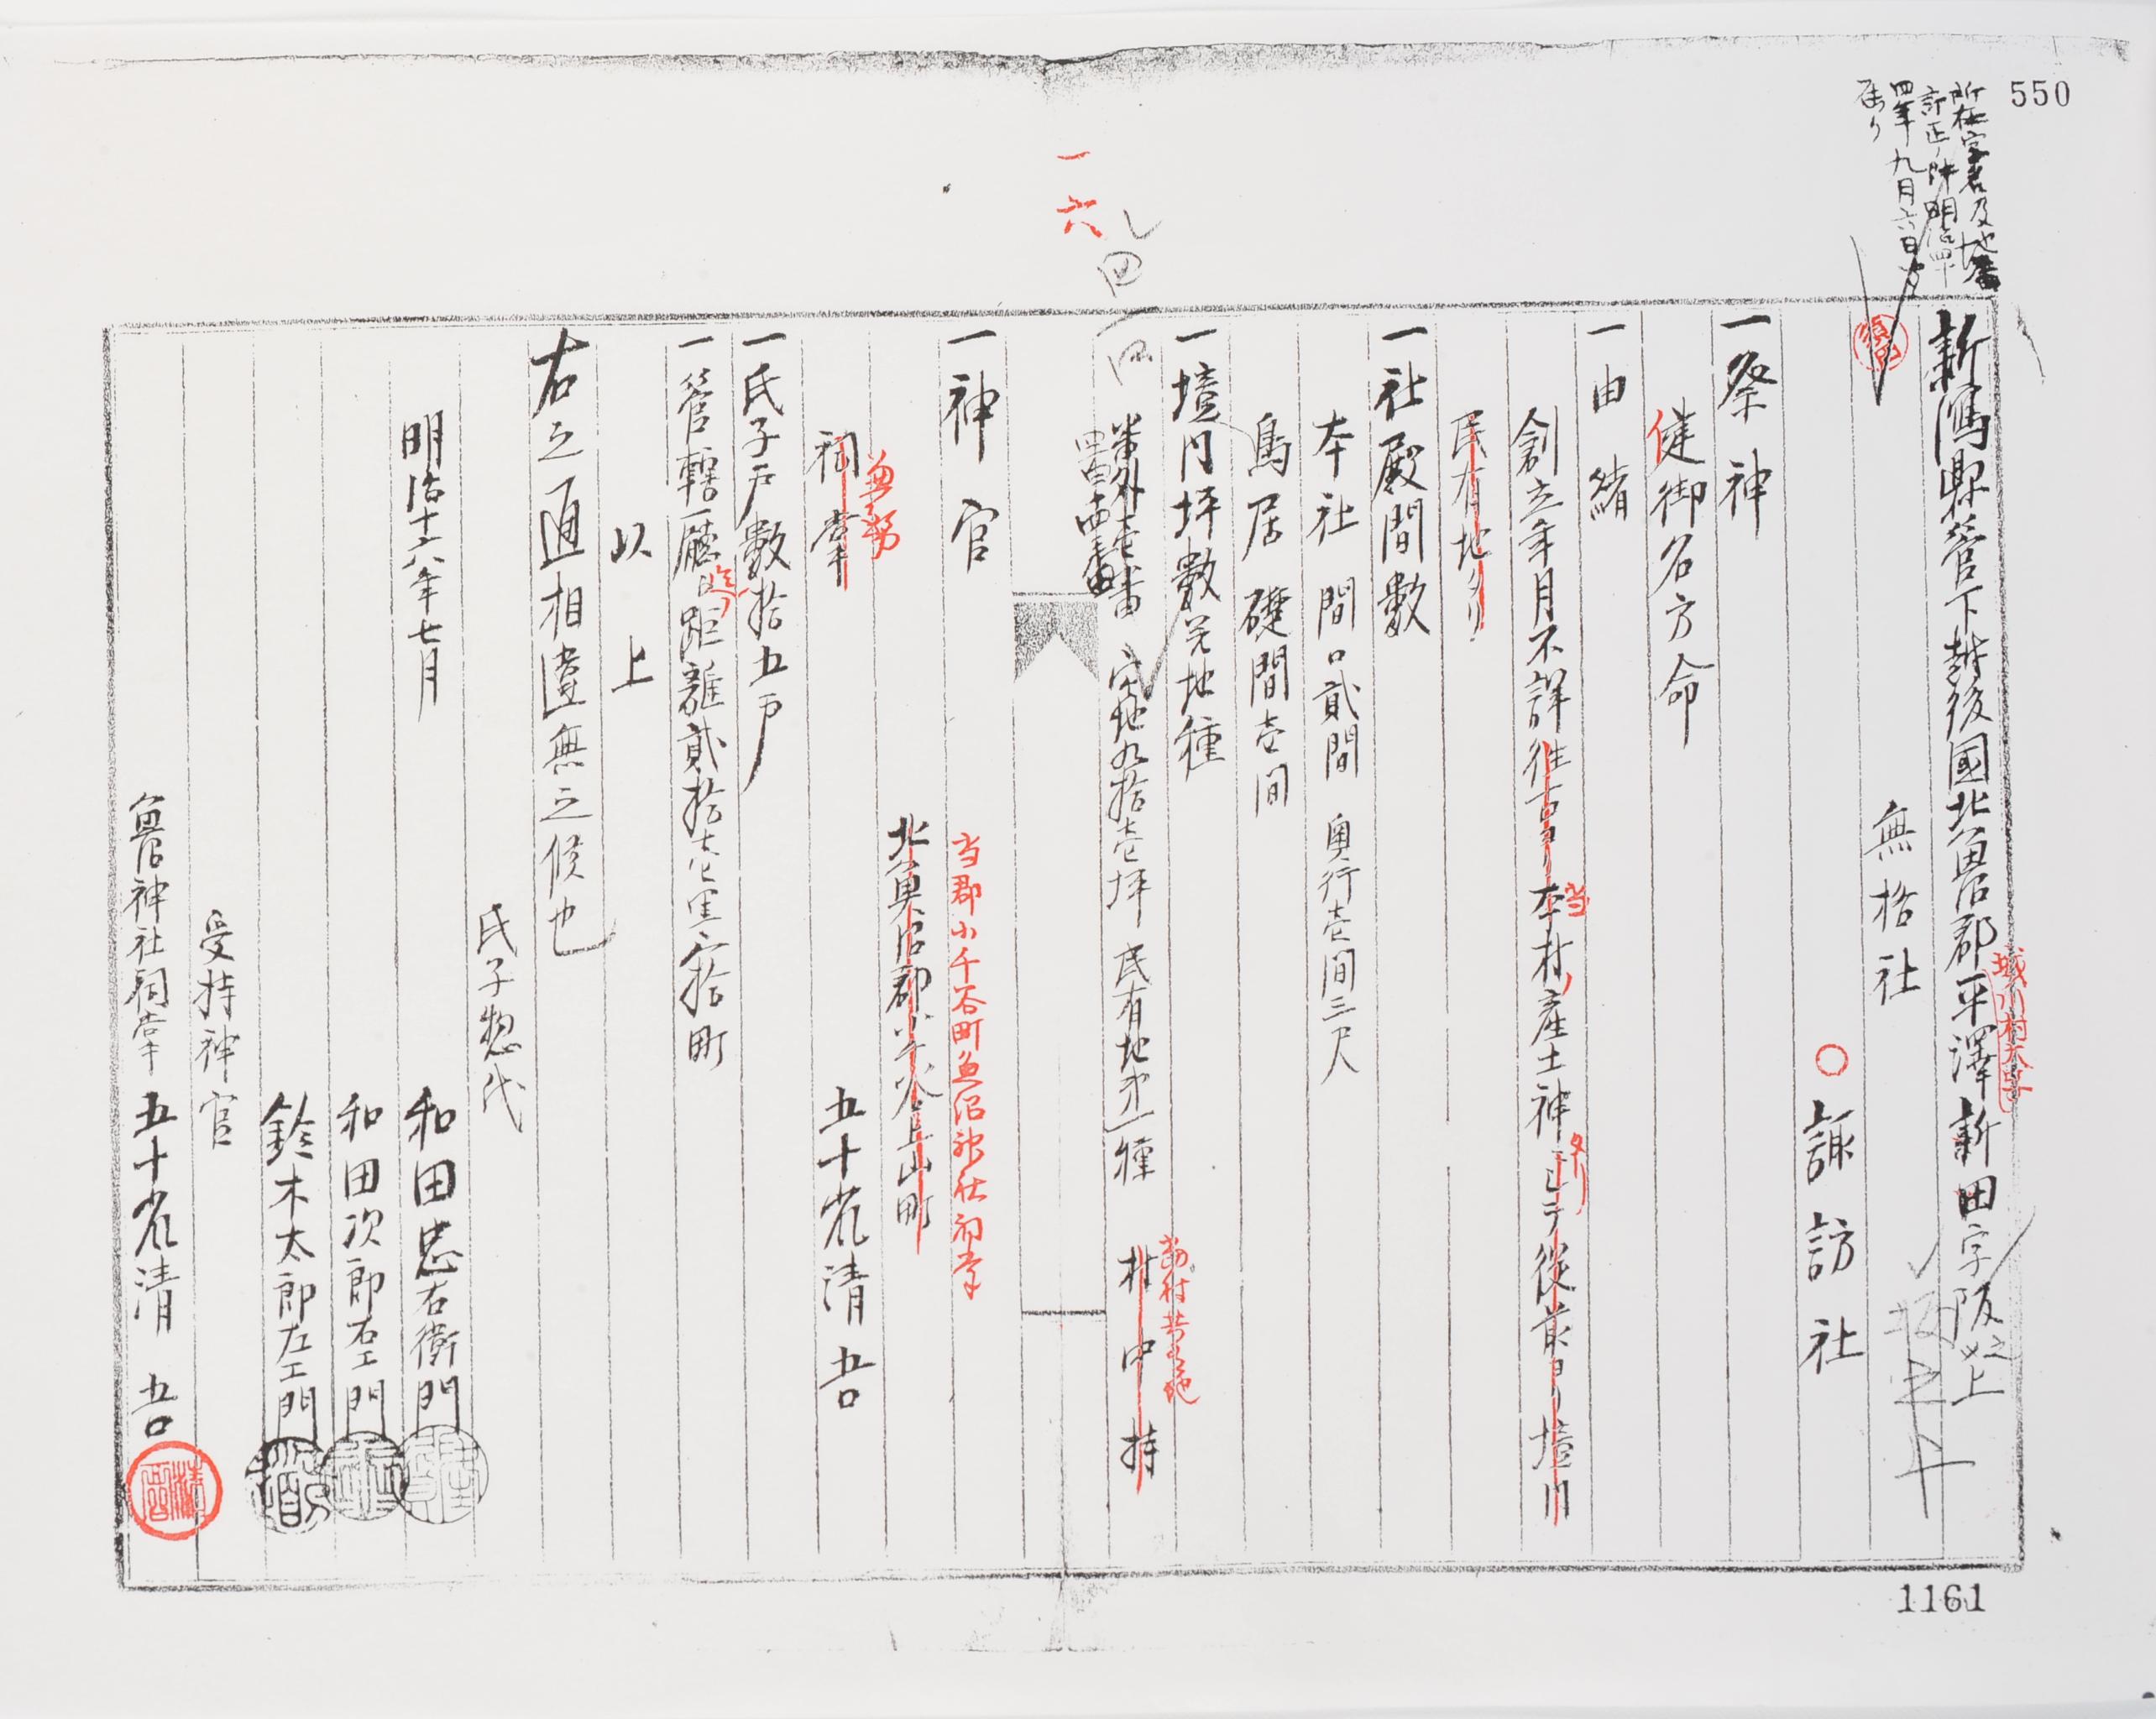 550
所在字名及地番
訂正ノ件明治四十
四年九月六日付
届リ
新潟縣管下越後國北魚沼郡平澤新田字阪之上
城川村大字
無格社
○諏訪社
一祭神
健御名方命
一由緒
創立年月不詳往古ヨリ本村産土神ニシテ從前ヨリ境内
当
民有地タリ
一社殿間數
本社 間口貳間 奥行壱間三尺
鳥居 礎間壱間
一境内坪數并地種
番外壱番 宅地九拾壱坪 民有地第一種 村中持
当村共有地
一六
一神官
当郡小千谷町魚沼神社祠掌
北魚沼郡小千谷上山町
兼務
祠掌 五十嵐清吾
一氏子戸數拾五戸
一管轄廳距離貳拾壱里六拾町
以上
右之通相違無之候也
氏子惣代
明治十六年七月 和田忠右衛門
和田次郎右エ門
鈴木太郎左エ門
受持神官
魚沼神社祠掌 五十嵐清吾
1161